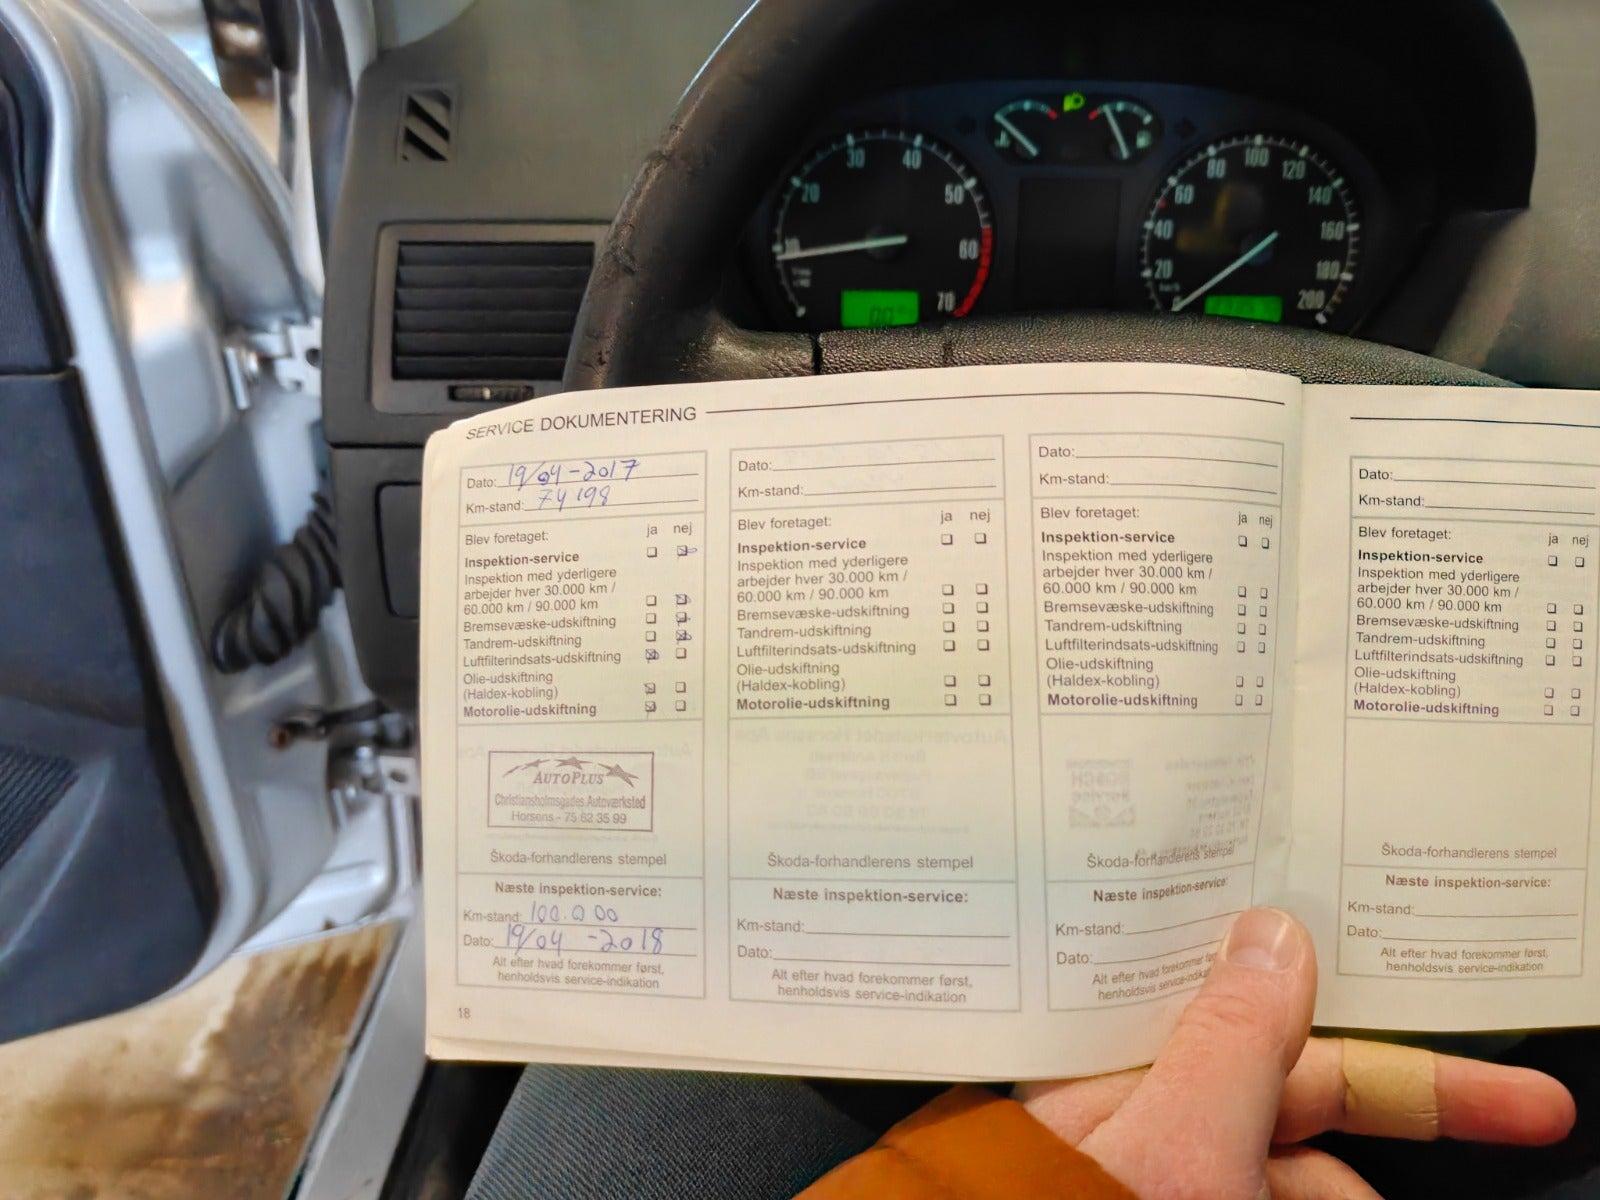 30 40
20 50
10 60
70
80 100 120
60 140
40 160
20 180
200
SERVICE DOKUMENTERING
Dato: 19/04-2017
Km-stand: 74198
Blev foretaget: ja nej
Inspektion-service
Inspektion med yderligere
arbejder hver 30.000 km /
60.000 km / 90.000 km
Bremsevæske-udskiftning
Tandrem-udskiftning
Luftfilterindsats-udskiftning
Olie-udskiftning
(Haldex-kobling)
Motorolie-udskiftning
AUTOPLUS
Christiansholmsgades Autoværksted
Horsens - 75 62 35 99
Škoda-forhandlerens stempel
Næste inspektion-service:
Km-stand: 100.000
Dato: 19/04 -2018
Alt efter hvad forekommer først,
henholdsvis service-indikation
18
Dato:
Km-stand:
Blev foretaget: ja nej
Inspektion-service
Inspektion med yderligere
arbejder hver 30.000 km /
60.000 km / 90.000 km
Bremsevæske-udskiftning
Tandrem-udskiftning
Luftfilterindsats-udskiftning
Olie-udskiftning
(Haldex-kobling)
Motorolie-udskiftning
Škoda-forhandlerens stempel
Næste inspektion-service:
Km-stand:
Dato:
Alt efter hvad forekommer først,
henholdsvis service-indikation
Dato:
Km-stand:
Blev foretaget: ja nej
Inspektion-service
Inspektion med yderligere
arbejder hver 30.000 km /
60.000 km / 90.000 km
Bremsevæske-udskiftning
Tandrem-udskiftning
Luftfilterindsats-udskiftning
Olie-udskiftning
(Haldex-kobling)
Motorolie-udskiftning
Škoda-forhandlerens stempel
Næste inspektion-service:
Km-stand:
Dato:
Alt efter hvad forekommer
henholdsvis service-indikation
Dato:
Km-stand:
Blev foretaget: ja nej
Inspektion-service
Inspektion med yderligere
arbejder hver 30.000 km /
60.000 km / 90.000 km
Bremsevæske-udskiftning
Tandrem-udskiftning
Luftfilterindsats-udskiftning
Olie-udskiftning
(Haldex-kobling)
Motorolie-udskiftning
Škoda-forhandlerens stempel
Næste inspektion-service:
Km-stand:
Dato:
Alt efter hvad forekommer først,
henholdsvis service-indikation